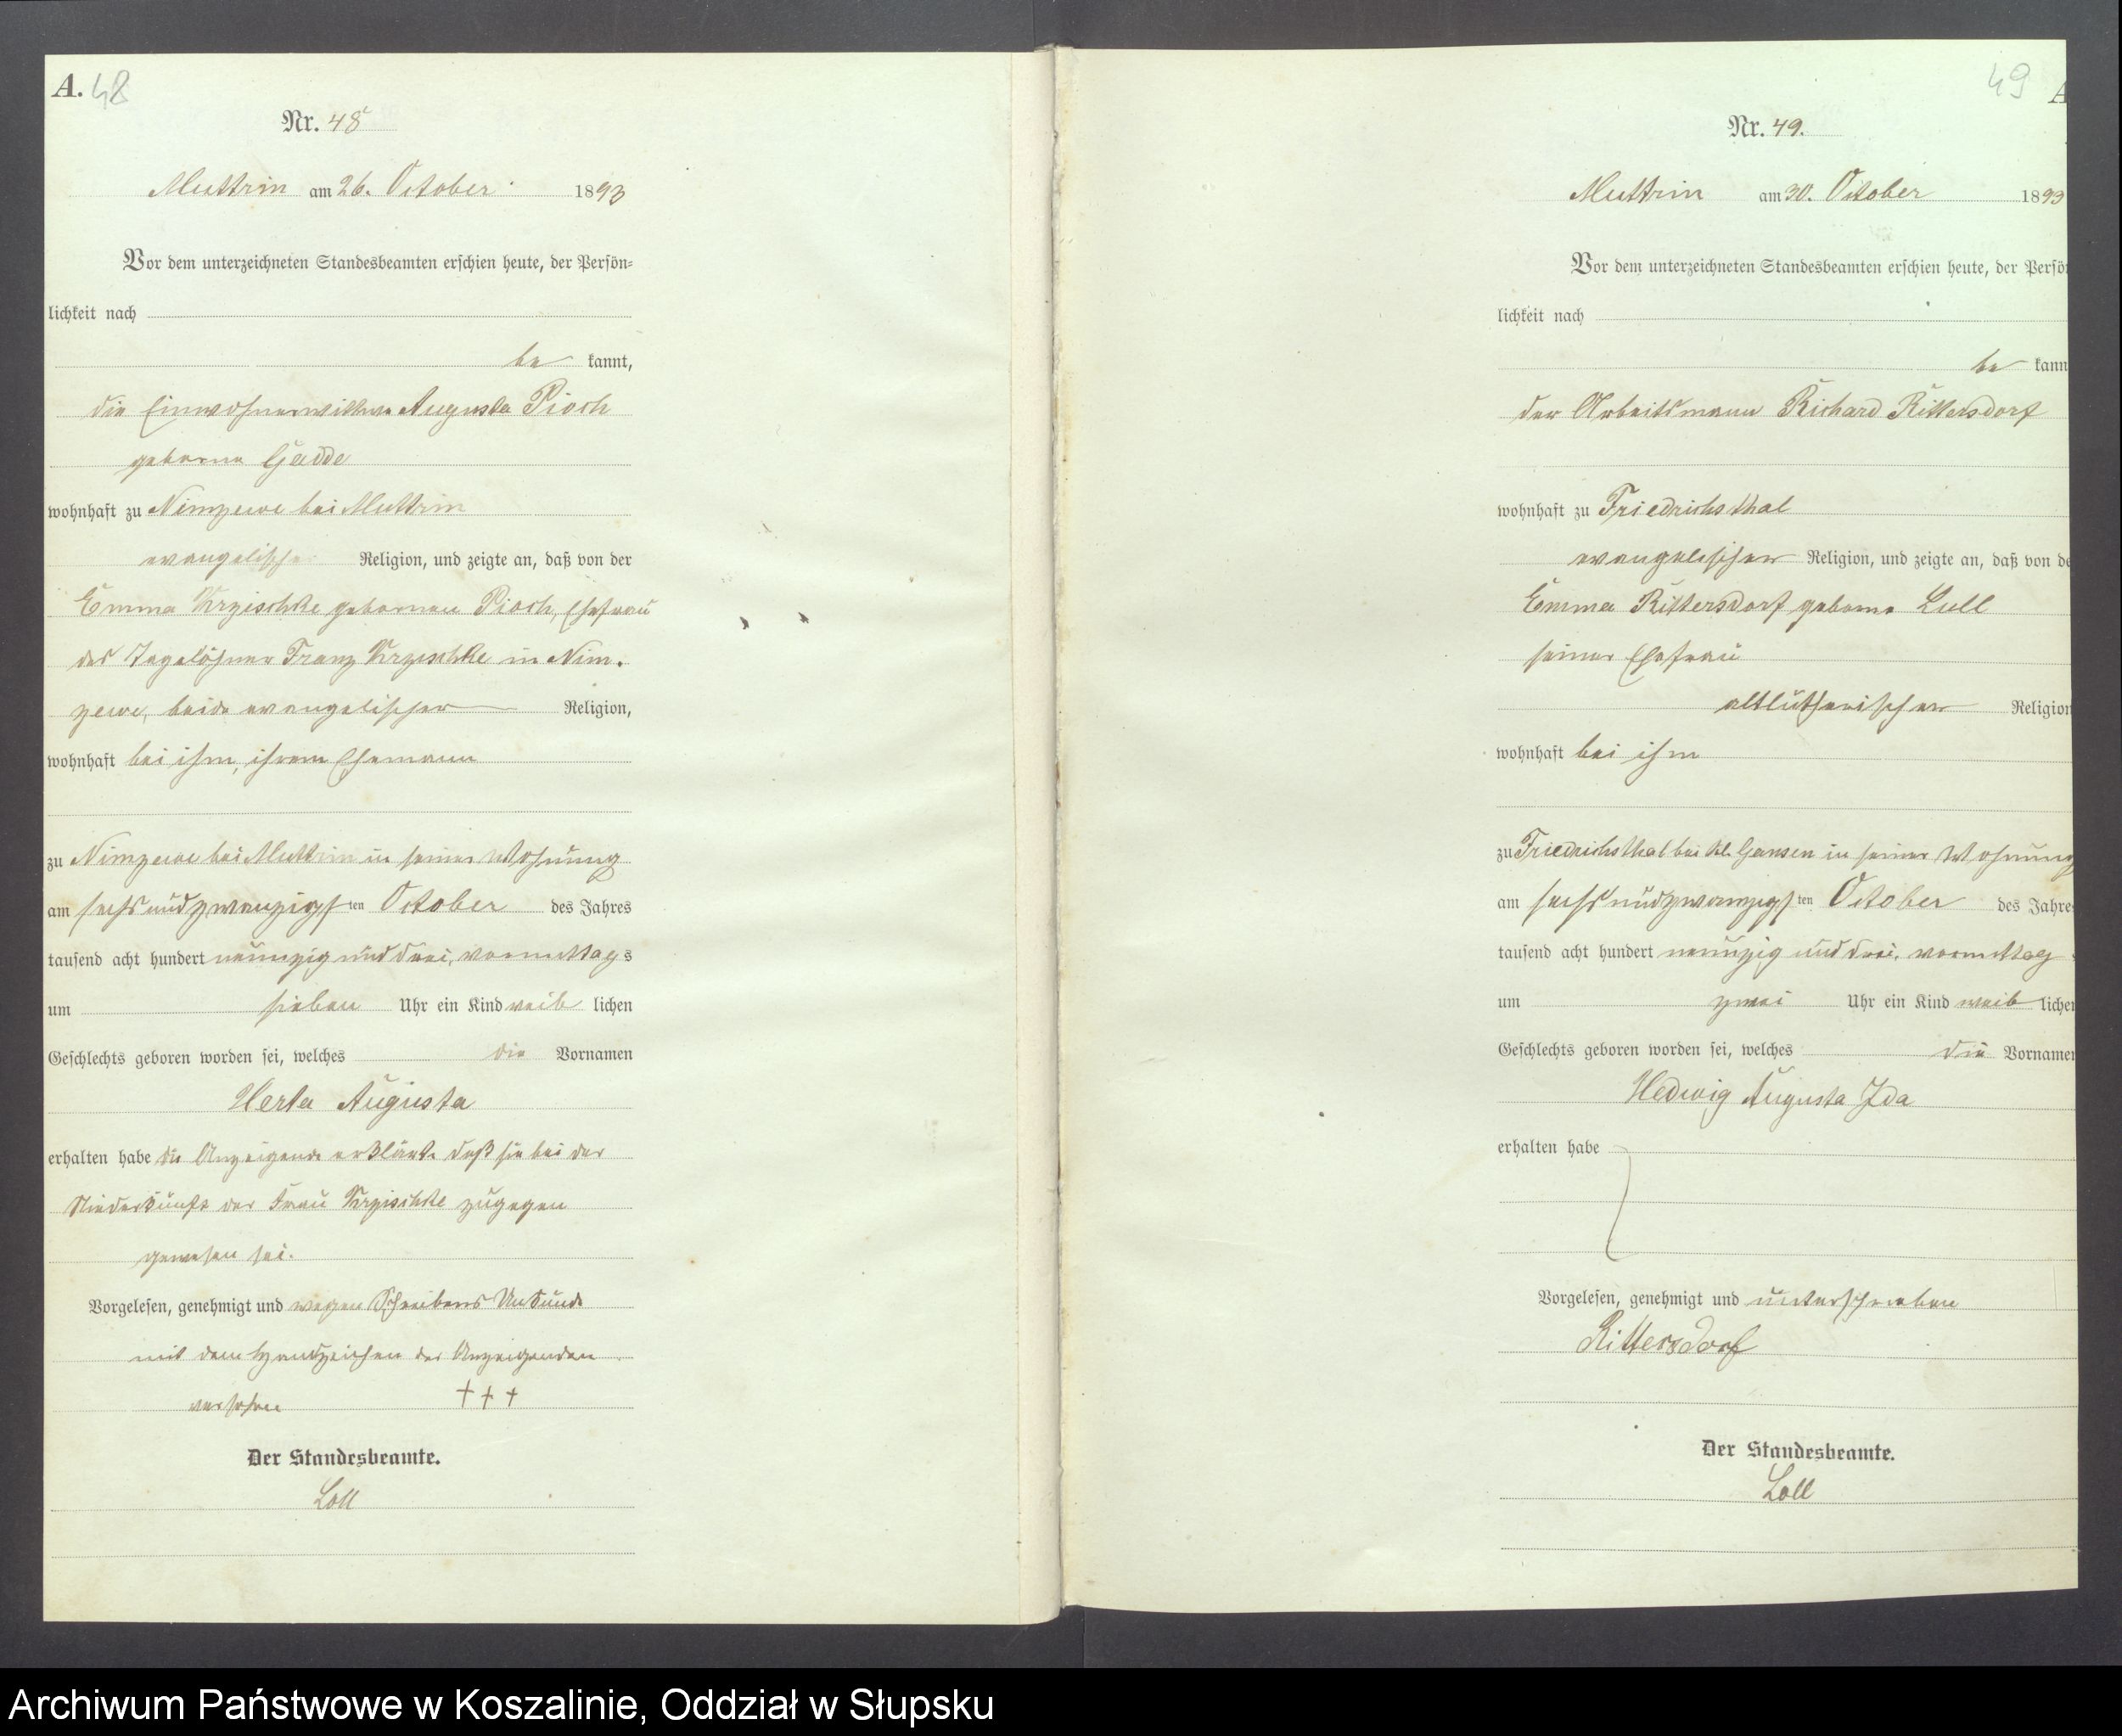 A. 48
Nr. 48
Muttrin am 26. October 1893
Vor dem unterzeichneten Standesbeamten erschien heute, der Persön-
lichkeit nach
be kannt,
die Einwohnerwittwe Augusta Pioch
geborne Gadde
wohnhaft zu Nimzewe bei Muttrin
evangelischer Religion, und zeigte an, daß von der
Emma Krzischke gebornen Pioch, Ehefrau
des Tagelöhner Franz Krzischke in Nim-
zewe, beide evangelischer Religion,
wohnhaft bei ihm, ihrem Ehemann
zu Nimzewe bei Muttrin in seiner Wohnung
am sechsundzwanzigsten October des Jahres
tausend acht hundert neunzig und drei, vormittags
um sieben Uhr ein Kind weiblichen
Geschlechts geboren worden sei, welches die Vornamen
Herta Augusta
erhalten habe die Anzeigende erklärte daß sie bei der
Niederkunft der Frau Krzischke zugegen
gewesen sei.
Vorgelesen, genehmigt und wegen Schreibens Unkunde
mit dem Handzeichen der Anzeigenden
versehen +++
Der Standesbeamte.
Loll
49 A
Nr. 49.
Muttrin am 30. October 1893
Vor dem unterzeichneten Standesbeamten erschien heute, der Persö
lichkeit nach
be kann
der Arbeitsmann Richard Rittersdorf
wohnhaft zu Friedrichsthal
evangelischer Religion, und zeigte an, daß von de
Emma Rittersdorf geborne Lull
seiner Ehefrau
altlutherischer Religion
wohnhaft bei ihm
zu Friedrichsthal bei Kl. Gansen in seiner Wohnung
am sechsundzwanzigsten October des Jahre
tausend acht hundert neunzig und drei, vormittag
um zwei Uhr ein Kind weiblichen
Geschlechts geboren worden sei, welches die Vornamen
Hedwig Augusta Ida
erhalten habe
Vorgelesen, genehmigt und unterschrieben
Rittersdorf
Der Standesbeamte.
Loll
Archiwum Państwowe w Koszalinie, Oddział w Słupsku